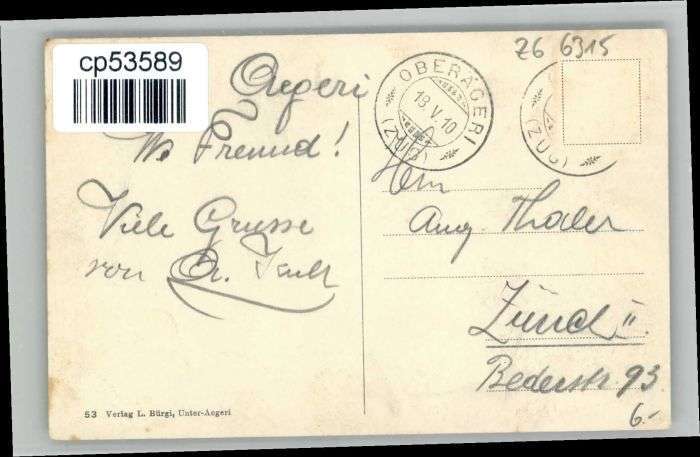 cp53589
Z6 6315
Aegeri
OBERÄGERI
18.V.10
(ZUG)
(ZUG)
Freund!
Herrn
Viele Grüsse
Aug. Thaler
von
Zürich II.
Bederstr. 93
6.-
53 Verlag L. Bürgi, Unter-Aegeri